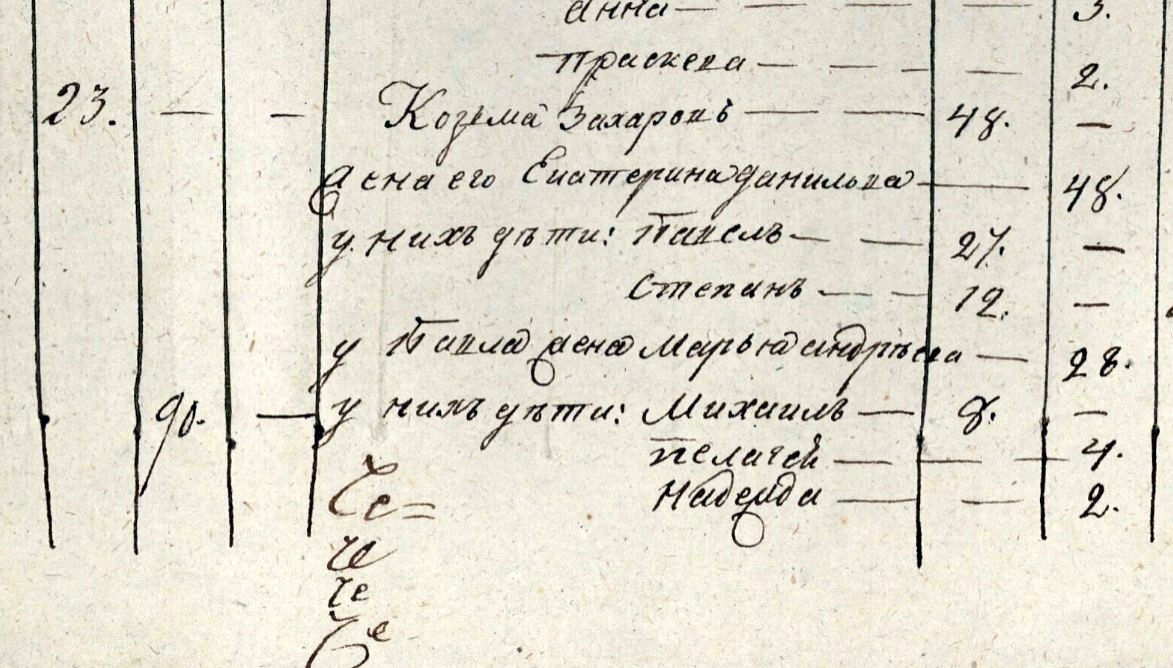 Анна — — — — 3.
Праскева — — — — 2.
23. — — Козма Захаровъ — — 48. —
Жена его Екатерина Данилова — 48.
у нихъ дѣти: Павелъ — — 27. —
Степанъ — — 12. —
у Павла жена Марья Андрѣева — 28.
90. — у нихъ дѣти: Михаилъ — 8. —
Пелагей — — — 4.
Надежда — — 2.
Че=
че
че
Че